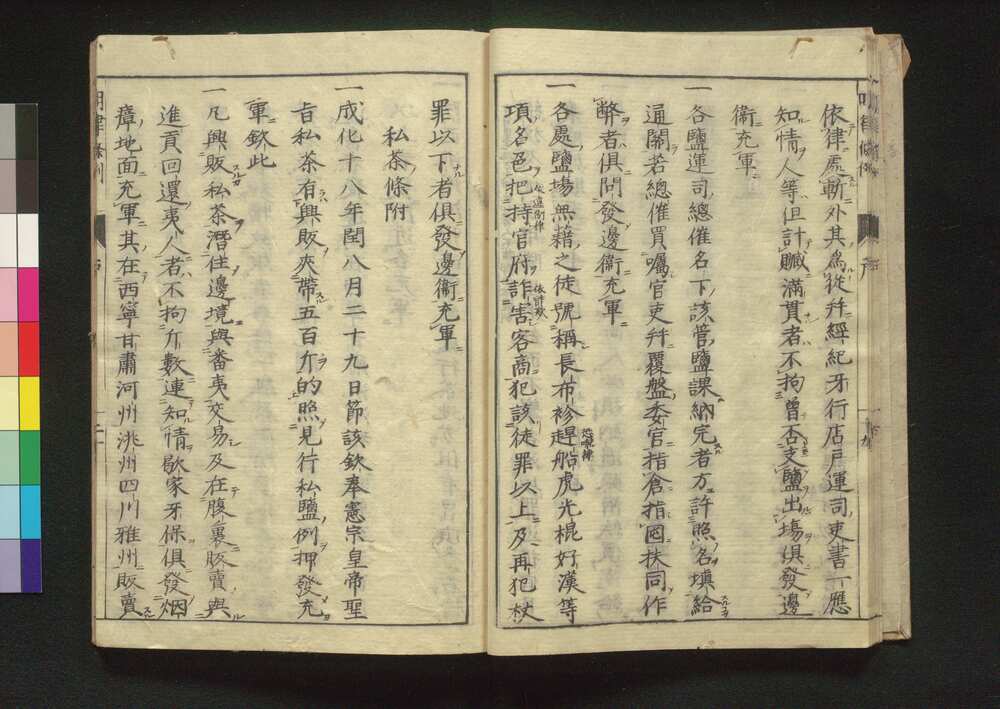 依律處斬外其爲從幷經紀牙行店戶運司吏書一應
知情人等但計贓滿貫者不拘曾否支鹽出塲俱發邊
衞充軍
一各鹽運司總催名下該管鹽課納完者方許照名塡給
通關若總催買囑官吏幷覆盤委官指倉指囤扶同作
弊者俱問發邊衞充軍
一各處鹽塲無藉之徒號稱長布衫趕船虎光棍好漢等
項名色把持官府詐害客商犯該徒罪以上及再犯杖
罪以下者俱發邊衞充軍
私茶條附
一成化十八年閏八月二十九日節該欽奉憲宗皇帝聖
旨私茶有興販夾帶五百斤的照見行私鹽例押發充
軍欽此
一凡興販私茶潛住邊境與番夷交易及在腹裏販賣與
進貢回還夷人者不拘斤數連知情歇家牙保俱發烟
瘴地面充軍其在西寧甘肅河州洮州四川雅州販賣